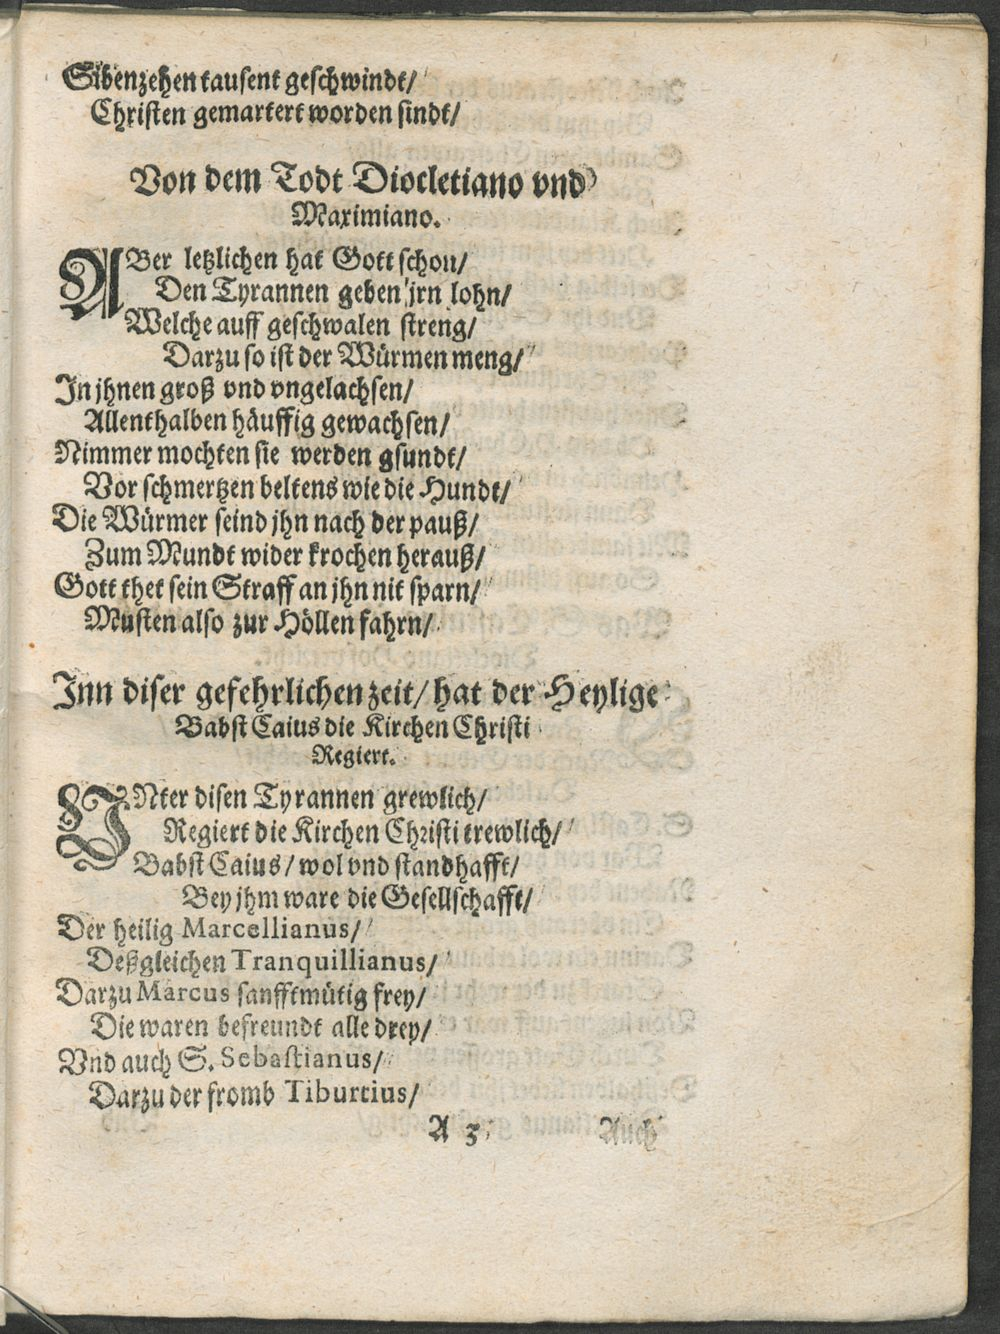 Sibenzehen tausent geschwindt/
Christen gemartert worden sindt/
Von dem Todt Diocletiano vnd
Maximiano.
ABer letzlichen hat Gott schon/
Den Tyrannen geben jrn lohn/
Welche auff geschwalen streng/
Darzu so ist der Würmen meng/
In jhnen groß vnd vngelachsen/
Allenthalben häuffig gewachsen/
Nimmer mochten sie werden gsundt/
Vor schmertzen beltens wie die Hundt/
Die Würmer seind jhn nach der pauß/
Zum Mundt wider krochen herauß/
Gott thet sein Straff an jhn nit sparn/
Musten also zur Höllen fahrn/
Inn diser gefehrlichen zeit/ hat der Heylige
Babst Caius die Kirchen Christi
Regiert.
VNter disen Tyrannen grewlich/
Regiert die Kirchen Christi trewlich/
Babst Caius/ wol vnd standhafft/
Bey jhm ware die Gesellschafft/
Der heilig Marcellianus/
Deßgleichen Tranquillianus/
Darzu Marcus sanfftmütig frey/
Die waren befreundt alle drey/
Vnd auch S. Sebastianus/
Darzu der fromb Tiburtius/
A 3
Auch